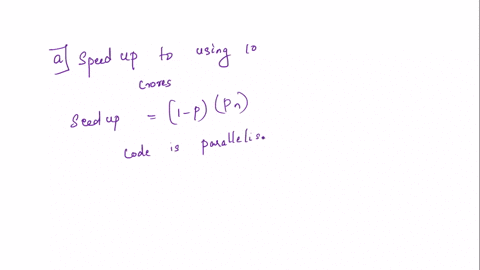 a] Speed up to using 10
cores
Seedup = (1-p) (pn)
code is parallelis.